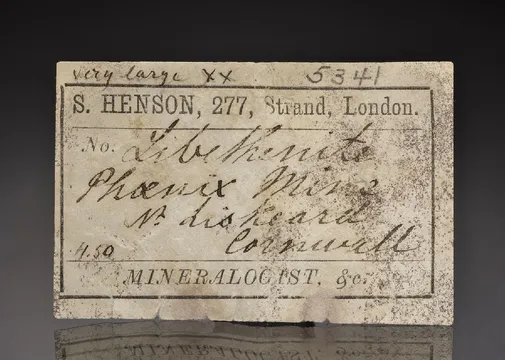 very large xx 5341
S. HENSON, 277, Strand, London.
No. Libethenite
Phœnix Mine
Nr liskeard
Cornwall
4.50
MINERALOGIST, &c.